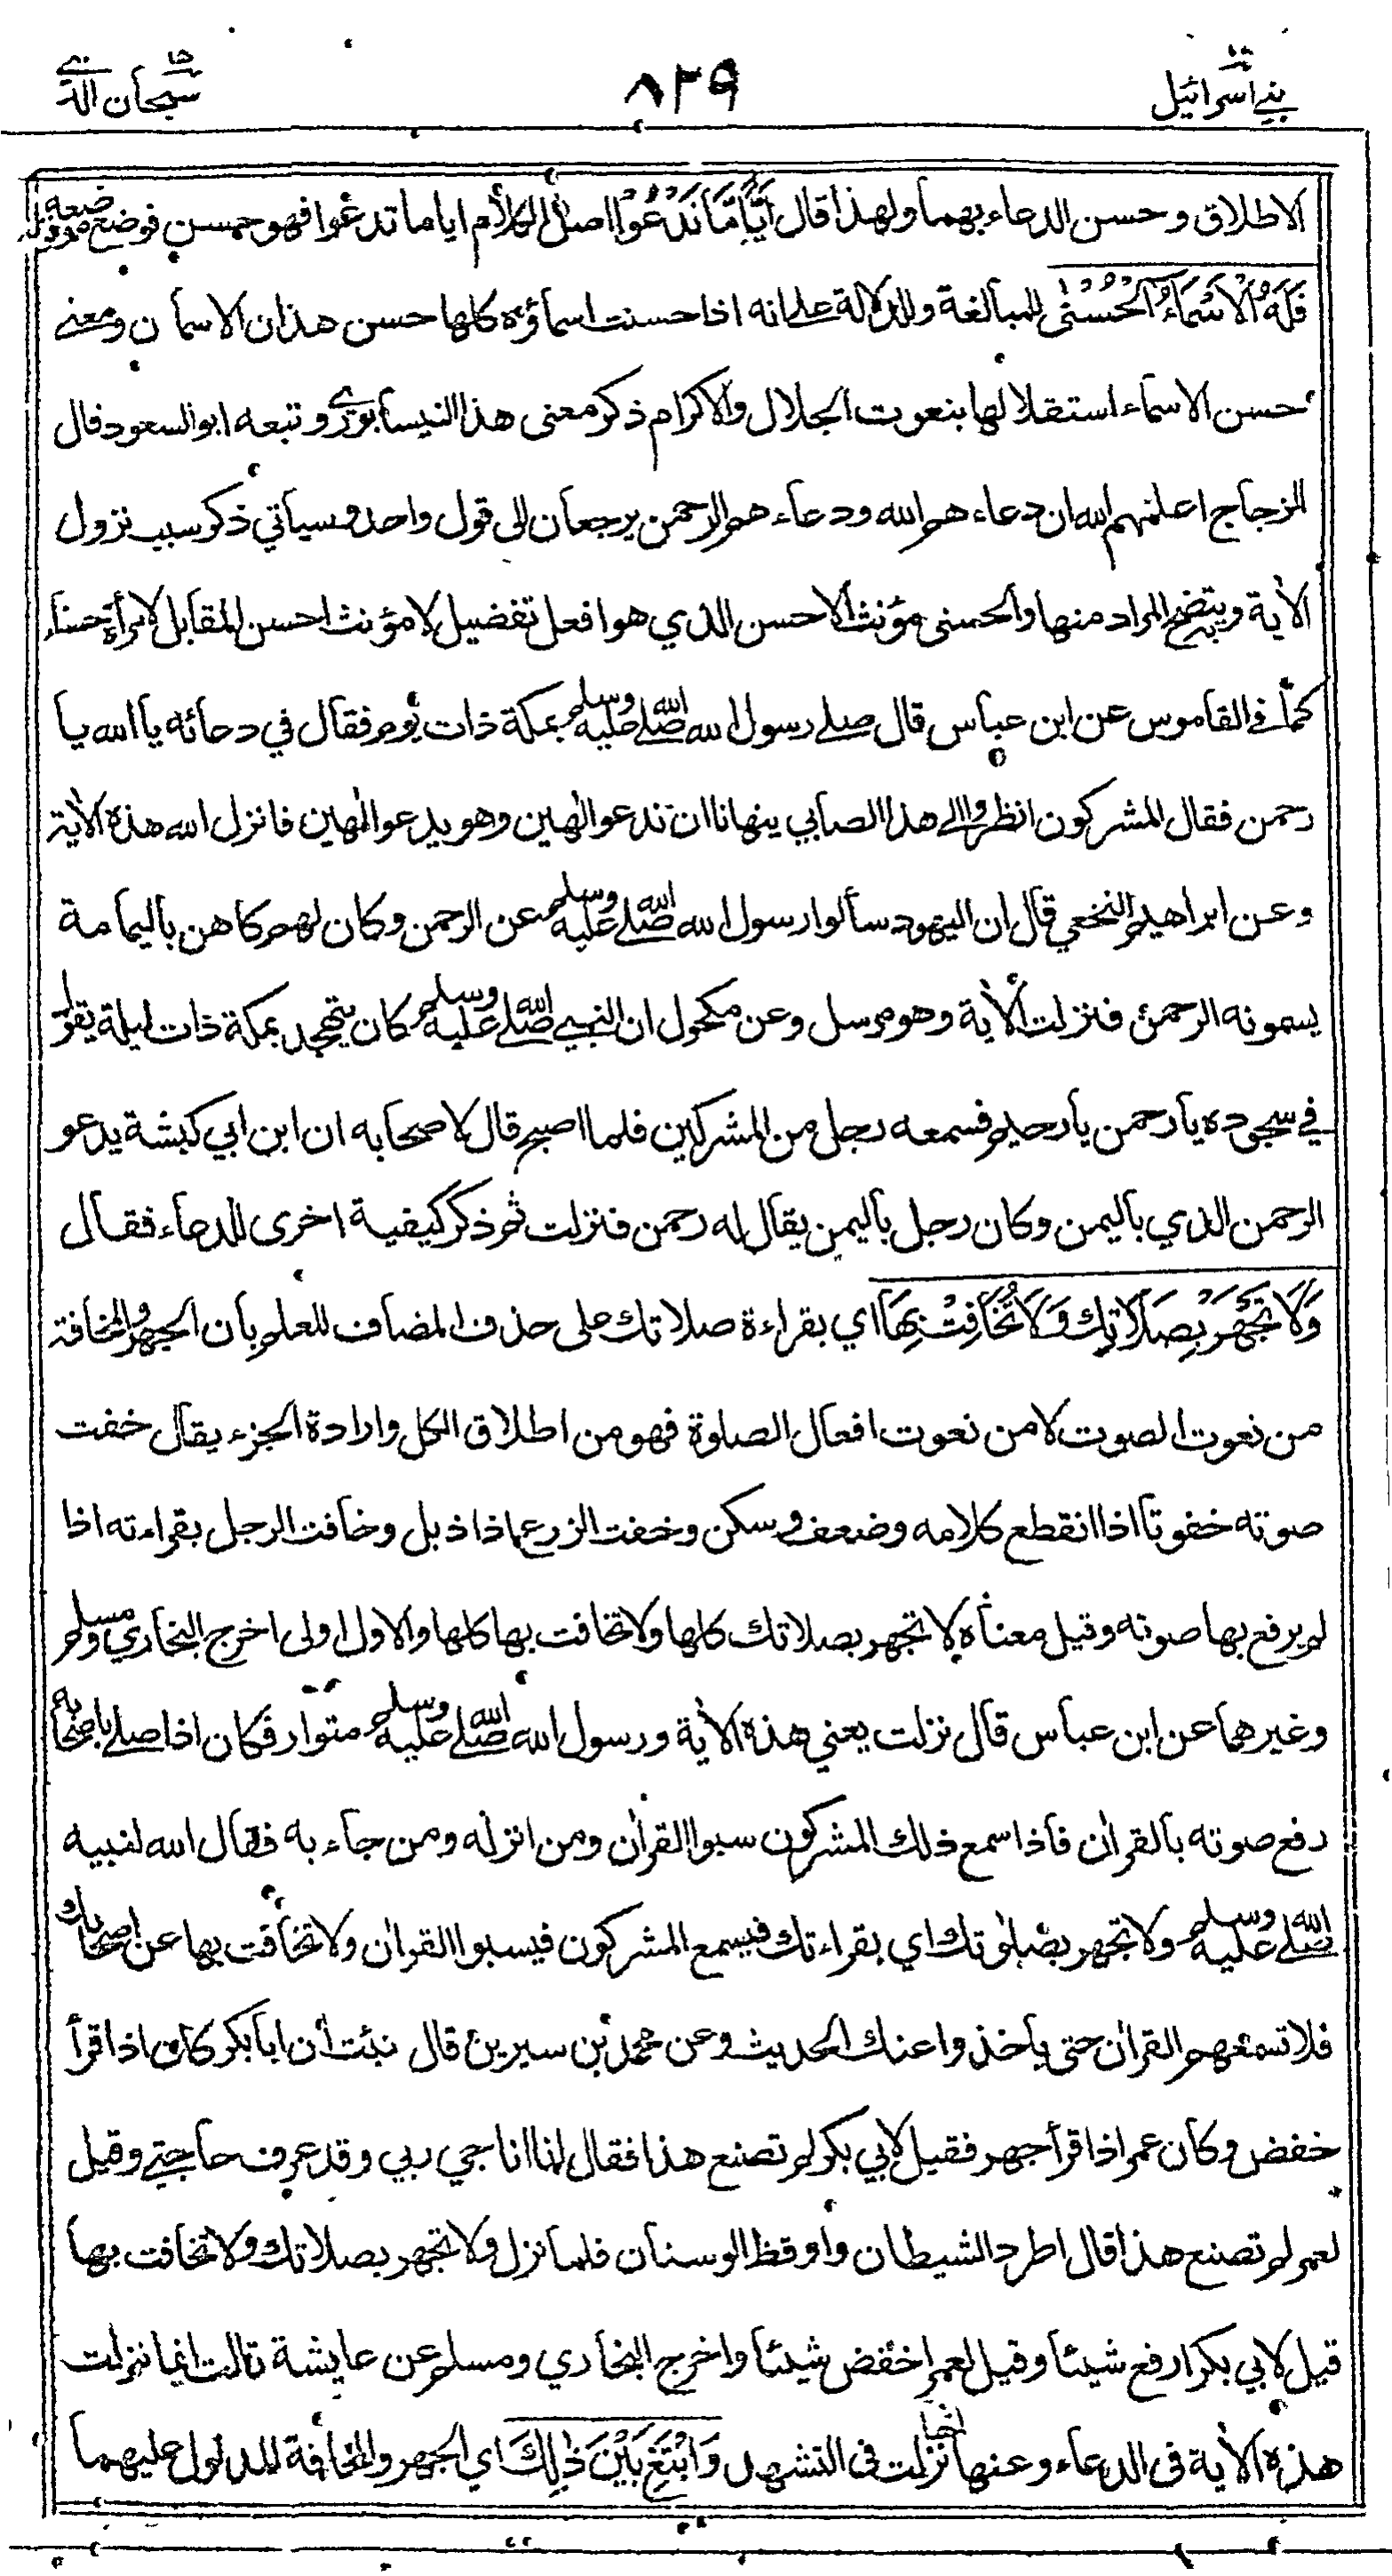 بني اسرائيل
٨٢٩
سبحان الذي
الاطلاق وحسن الدعاء بهما ولهذا قال أَيًّا مَّا تَدْعُوْا اصل الكلام اياما تدعوا فهو حسن فوضع موضعه قوله
فَلَهُ الْاَسْمَاءُ الْحُسْنٰى للمبالغة وللدلالة على انه اذا حسنت اسماؤه كلها حسن هذان الاسمان ومعنى
حسن الاسماء استقلالها بنعوت الجلال والاكرام ذكر معنى هذا النيسابوري وتبعه ابو السعود قال
الزجاج اعلمهم الله ان دعاءهم الله ودعاءهم الرحمن يرجعان الى قول واحد وسياتي ذكر سبب نزول
الاٰية ويتضح المراد منها والحسنى مؤنث الاحسن الذي هو افعل تفضيل لا مؤنث احسن المقابل لامرأة حسناء
كما في القاموس عن ابن عباس قال صلى رسول الله صلى الله عليه وسلم بمكة ذات يوم فقال في دعائه يا الله يا
رحمن فقال المشركون انظروا الى هذا الصابي ينهانا ان ندعو الٰهين وهو يدعو الٰهين فانزل الله هذه الاٰية
وعن ابراهيم النخعي قال ان اليهود سألوا رسول الله صلى الله عليه وسلم عن الرحمن وكان لهم كاهن باليمامة
يسمونه الرحمن فنزلت الاٰية وهو مرسل وعن مكحول ان النبي صلى الله عليه وسلم كان يتهجد بمكة ذات ليلة يقول
في سجوده يا رحمن يا رحيم فسمعه رجل من المشركين فلما اصبح قال لاصحابه ان ابن ابي كبشة يدعو
الرحمن الذي باليمن وكان رجل باليمن يقال له رحمن فنزلت ثم ذكر كيفية اخرى للدعاء فقال
وَلَا تَجْهَرْ بِصَلَاتِكَ وَلَا تُخَافِتْ بِهَا اي بقراءة صلاتك على حذف المضاف للعلم بان الجهر والمخافتة
من نعوت الصوت لا من نعوت افعال الصلوة فهو من اطلاق الكل وارادة الجزء يقال خفت
صوته خفوتا اذا انقطع كلامه وضعف وسكن وخفت الزرع اذا ذبل وخافت الرجل بقراءته اذا
لم يرفع بها صوته وقيل معناه لا تجهر بصلاتك كلها ولا تخافت بها كلها والاول اولى اخرج البخاري ومسلم
وغيرهما عن ابن عباس قال نزلت يعني هذه الاٰية ورسول الله صلى الله عليه وسلم متوار فكان اذا صلى باصحابه
رفع صوته بالقراٰن فاذا سمع ذلك المشركون سبوا القراٰن ومن انزله ومن جاء به فقال الله لنبيه
صلى الله عليه وسلم ولا تجهر بصلٰوتك اي بقراءتك فيسمع المشركون فيسبوا القراٰن ولا تخافت بها عن اصحابك
فلا تسمعهم القراٰن حتى يأخذوا عنك الحديث وعن محمد بن سيرين قال نبئت أن ابا بكر كان اذا قرأ
خفض وكان عمر اذا قرأ جهر فقيل لابي بكر لم تصنع هذا فقال انا اناجي ربي وقد عرف حاجتي وقيل
لعمر لم تصنع هذا قال اطرد الشيطان واوقظ الوسنان فلما نزل ولا تجهر بصلاتك ولا تخافت بها
قيل لابي بكر ارفع شيئا وقيل لعمر اخفض شيئا واخرج البخاري ومسلم عن عايشة قالت انما نزلت
هذه الاٰية في الدعاء وعنها انها نزلت في التشهد وَابْتَغِ بَيْنَ ذٰلِكَ اي الجهر والمخافتة المدلول عليهما